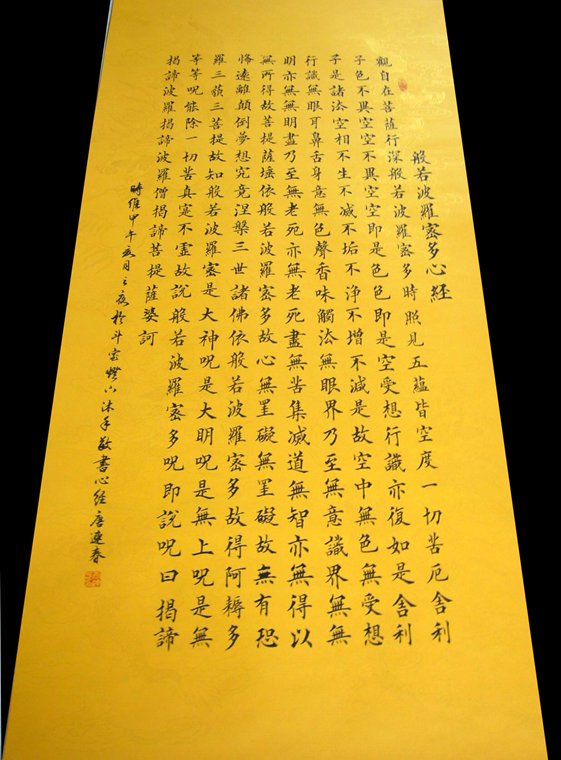 般若波羅密多心経
觀自在菩薩行深般若波羅密多時照見五蘊皆空度一切苦厄舍利
子色不異空空不異空空即是色色即是空受想行識亦復如是舍利
子是諸法空相不生不減不垢不浄不增不減是故空中無色無受想
行識無眼耳鼻舌身意無色聲香味觸法無眼界乃至無意識界無無
明亦無無明盡乃至無老死亦無老死盡無苦集滅道無智亦無得以
無所得故菩提薩埵依般若波羅密多故心無罣礙無罣礙故無有恐
怖遠離顛倒夢想究竟涅槃三世諸佛依般若波羅密多故得阿耨多
羅三藐三菩提故知般若波羅密是大神呪是大明呪是無上呪是無
等等呪能除一切苦真寔不虛故說般若波羅密多呪即說呪曰揭諦
揭諦波羅揭諦波羅僧揭諦菩提薩婆訶
時維甲午亥月之夜於斗室沐手敬書心經唐連春